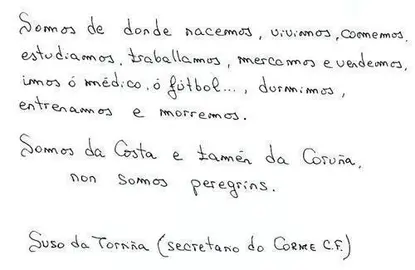 Somos de donde nacemos, vivimos, comemos,
estudiamos, traballamos, mercamos e vendemos,
imos ó médico, ó fútbol..., durmimos,
entrenamos e morremos.
Somos da Costa e tamén da Coruña,
non somos peregrins.
Suso da Torniña (secretario do CORME C.F.)